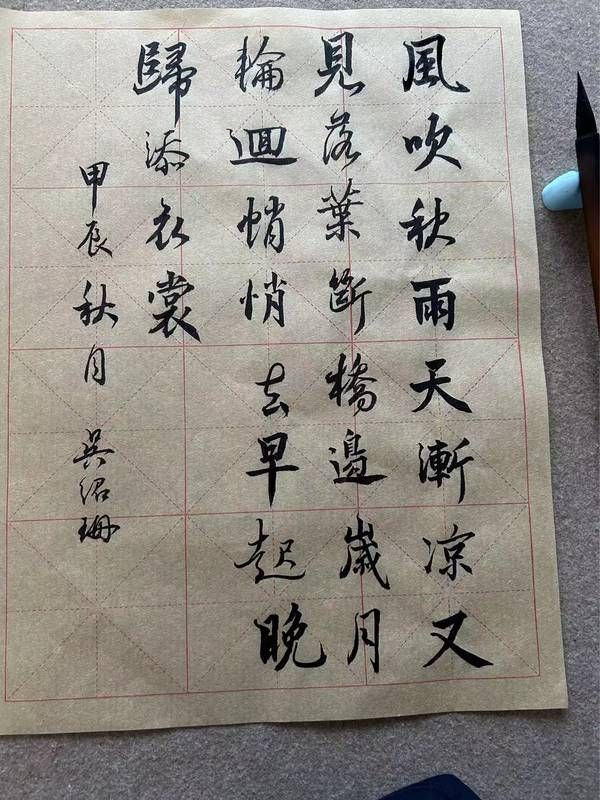 風吹秋雨天漸凉又
見落葉斷橋邊歲月
輪迴悄悄去早起晚
歸添衣裳
甲辰秋月 吴紹珊